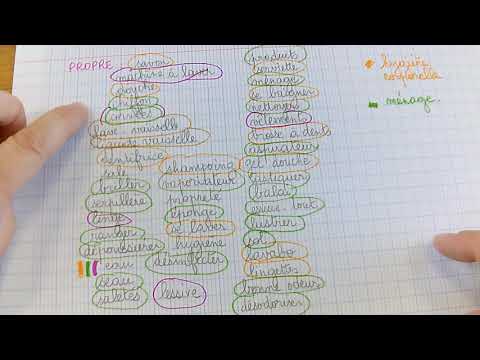 PROPRE
savon
machine à laver
douche
chiffon
corvée
lave vaisselle
liquide vaisselle
dentifrice
sale
briller
serpillère
linge
récurer
dépoussiérer
eau
beau
saletés
shampoing
vaporisateur
propreté
éponge
se laver
hygiène
désinfecter
lessive
produits
serviette
ménage
se baigner
nettoyer
vêtements
brosse à dents
aspirateur
gel douche
astiquer
balai
essuie-tout
lustrer
sol
lavabo
lingettes
bonne odeur
désodoriser
hygiène
corporelle
ménage